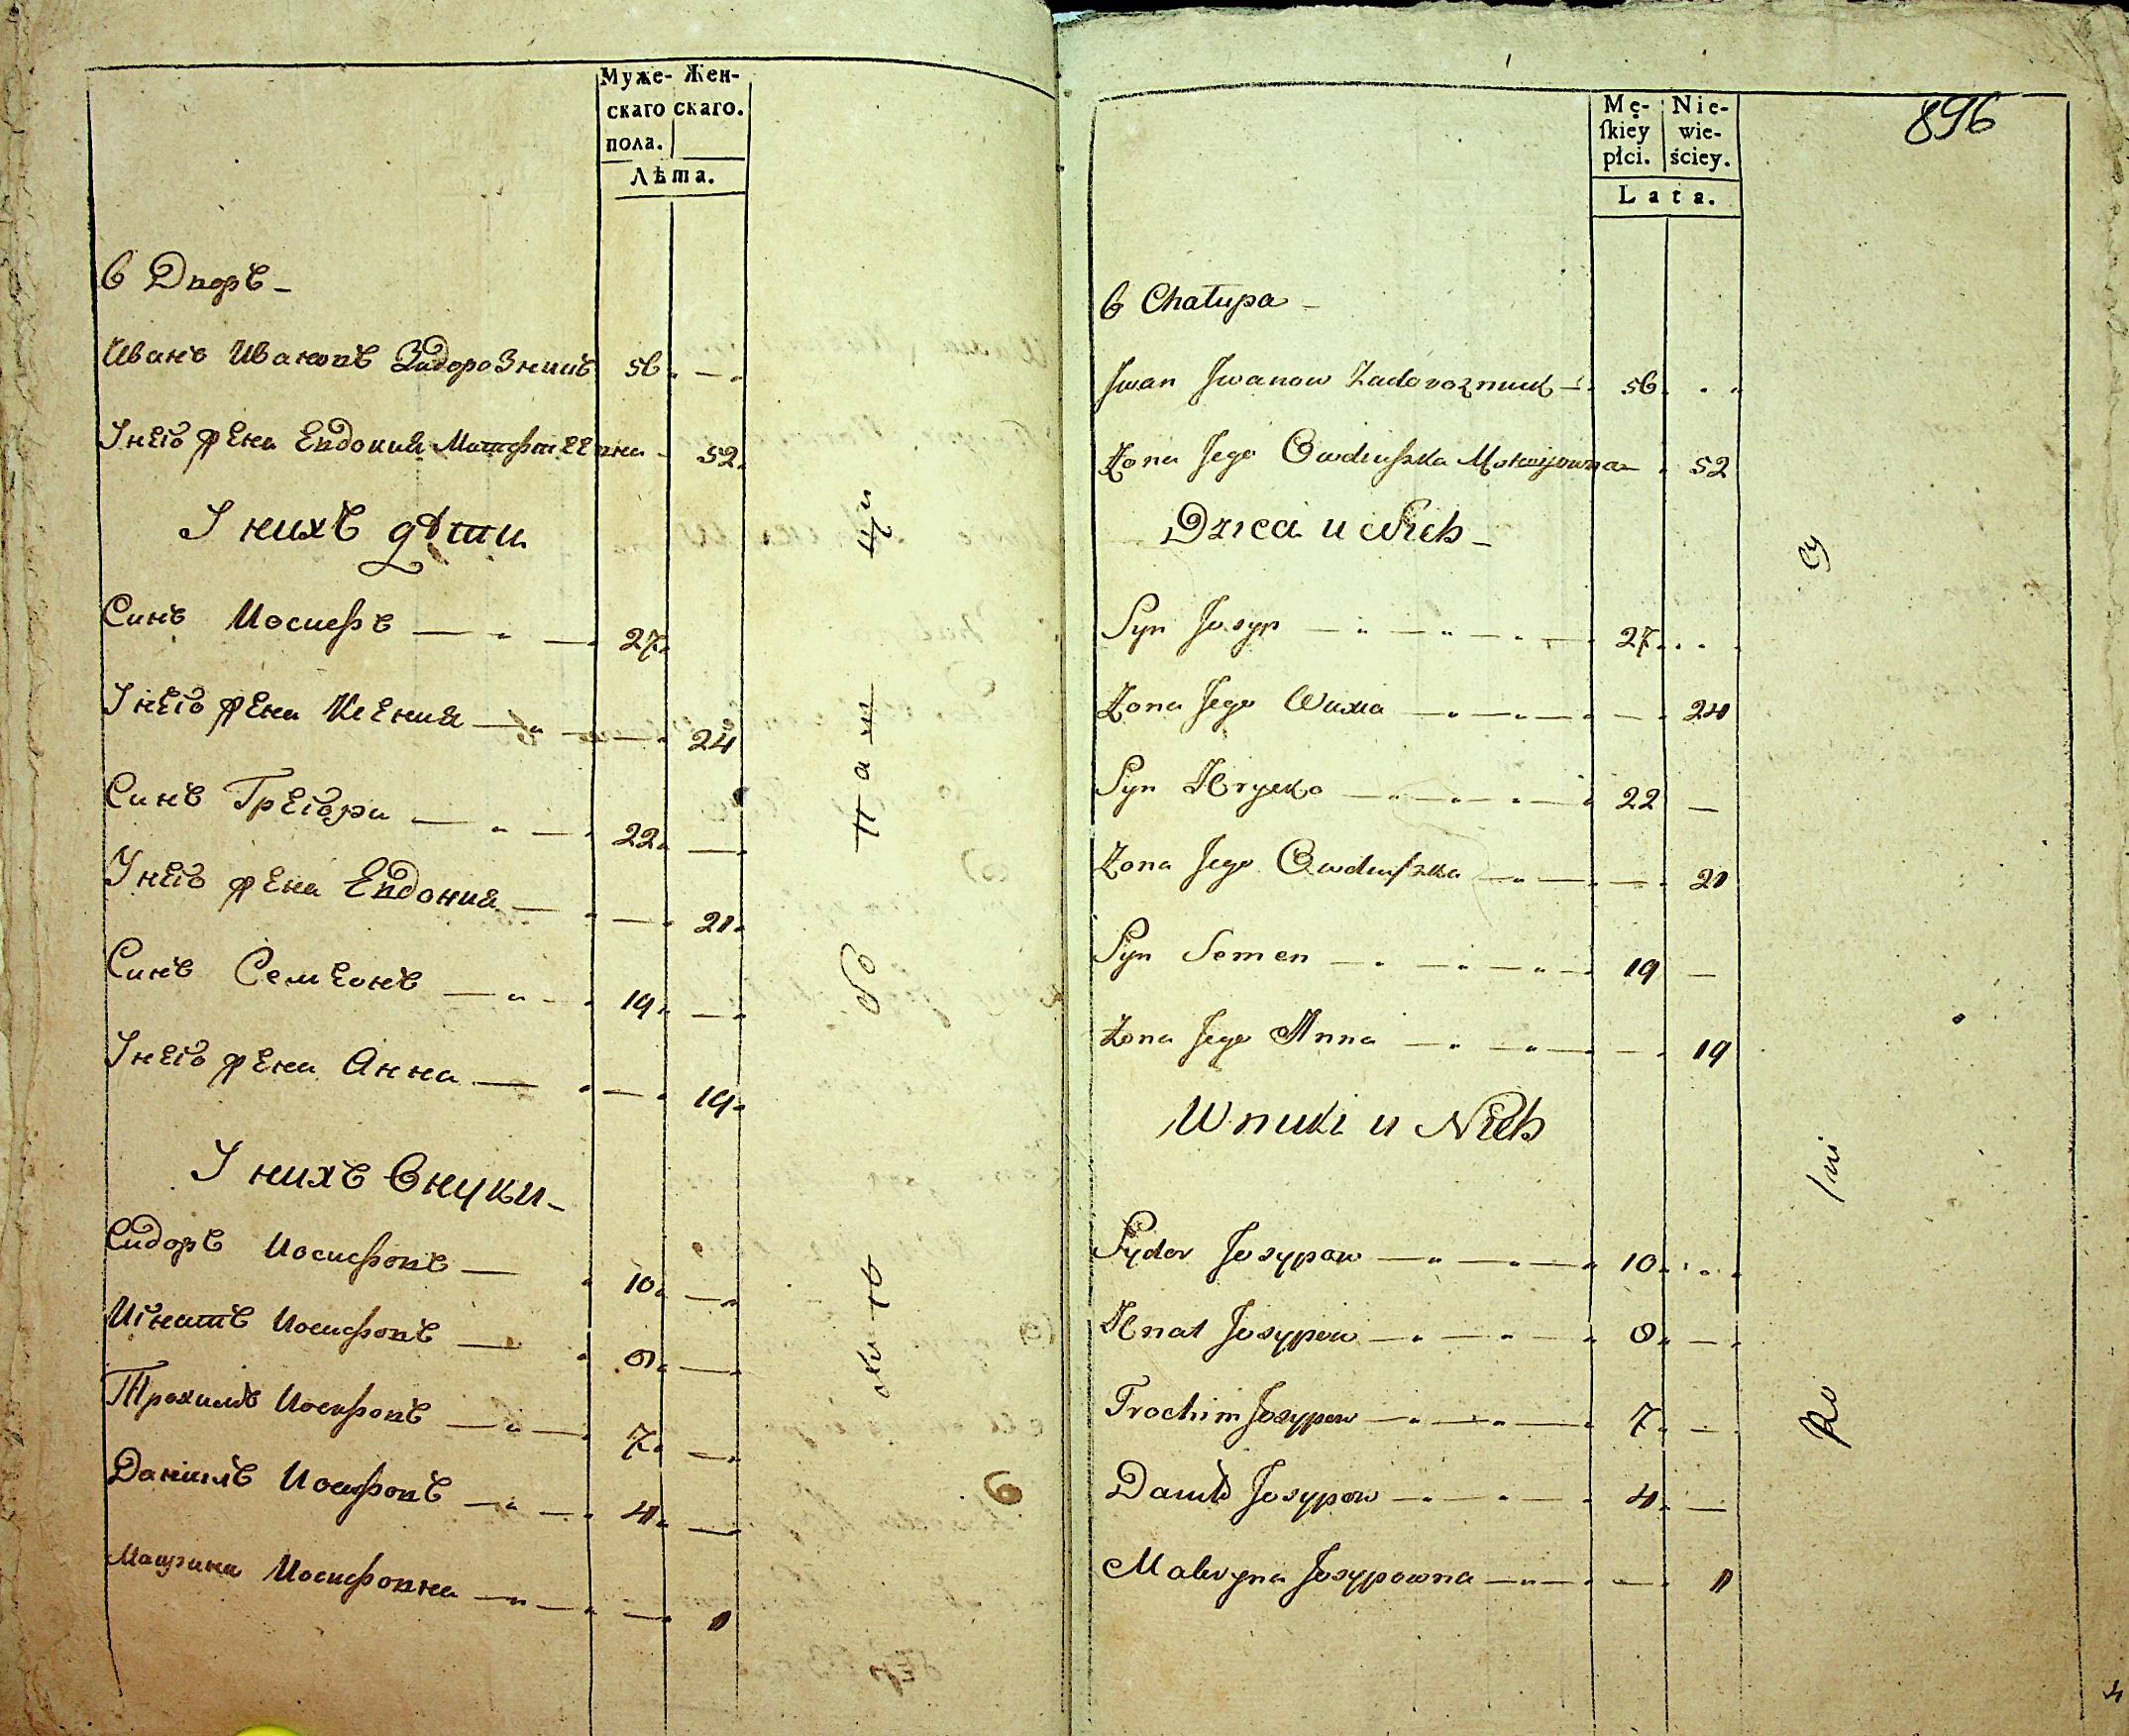 Муже- Жен-
скаго скаго.
пола.
Лѣта.
6 Дворъ
Иванъ Ивановъ Задорозничъ 56
У него жена Евдокия Матфеевна 52
У нихъ дѣти
Синъ Иосифъ 27
У него жена Ксения 24
Синъ Грегори 22
У него жена Евдокия 21
Синъ Семеонъ 19
У него жена Анна 19
У нихъ внуки
Сидоръ Иосифовъ 10
Игнатъ Иосифовъ 8
Трохимъ Иосифовъ 7
Даниилъ Иосифовъ 4
Маврина Иосифовна 1
896
Mę- Nie-
ſkiey wie-
płci. ściey.
Lata.
6 Chałupa
Iwan Iwanow Zadorozniuk 56
Żona Jego Owduſzka Motwijowna 52
Dzieci u Nich
Syn Josyp 27
Żona Jego 24
Syn Hryćko 22
Żona Jego Owduſzka 21
Syn Semen 19
Żona Jego Anna 19
Wnuki u Nich
Sydor Josypow 10
Hnat Josypow 8
Trochim Josypow 7
Daniło Josypow 4
Mawryna Josypowna 1